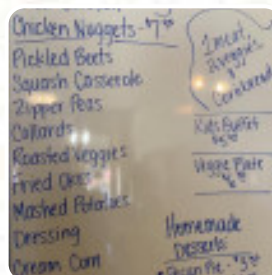 Chicken Nuggets - $7
Pickled Beets
Squash Casserole
Zipper Peas
Collards
Roasted Veggies
Fried Okra
Mashed Potatoes
Dressing
Cream Corn
1 meat,
2 veggies
Cornbread
Kids Buffet
Veggie Plate
Homemade
Desserts
Pecan Pie - $3